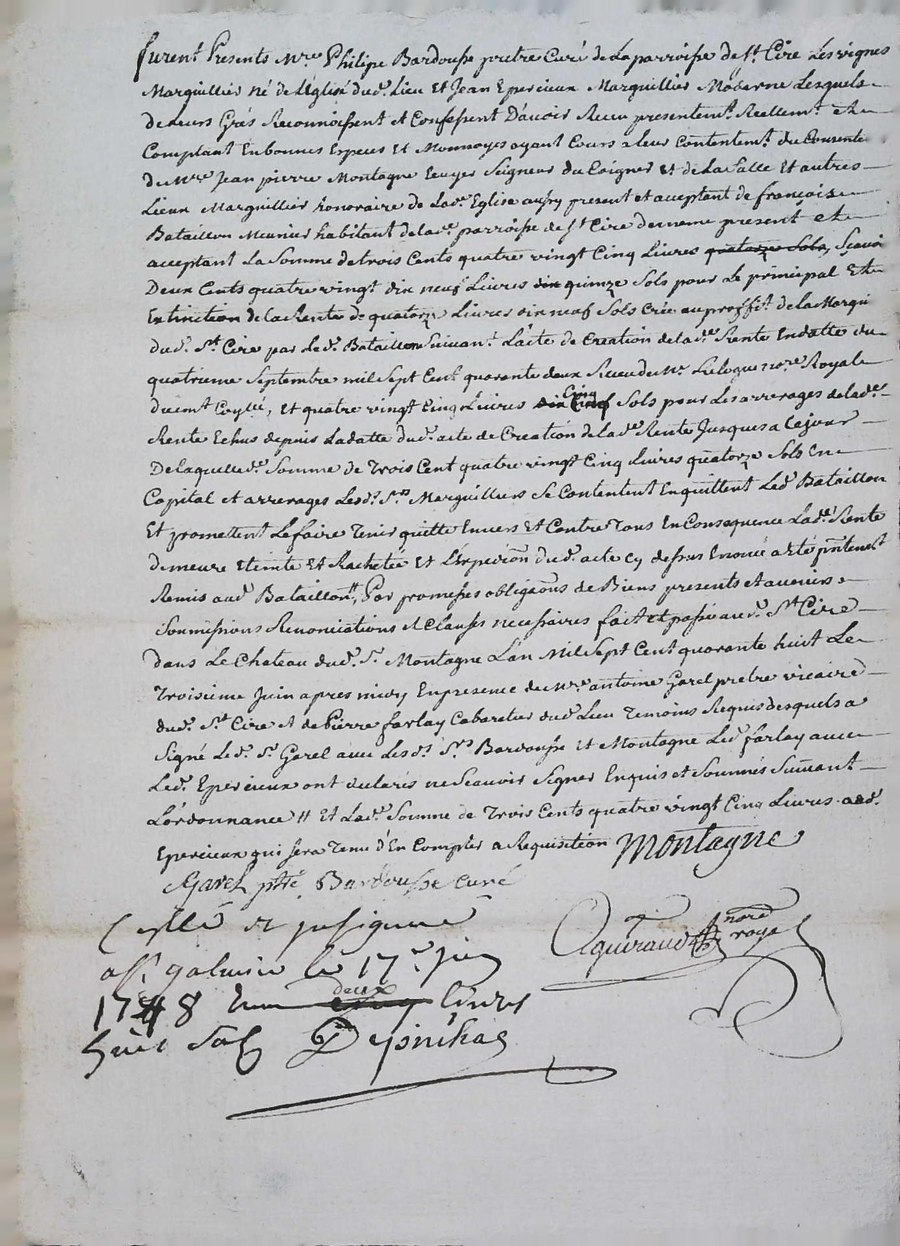 furent Presents Mre Philipe Bardousse pretre Curé de La parroisse de St. Cire Les vignes
Marguillier né de L'Eglise dud. Lieu et Jean Epercieux Marguillier Moderne Lesquels
de Leurs Grés Reconnoissent et Confessent D'avoir Recu presentemt. Reellemt. et
Comptant En bonnes Especes et Monnoyes ayant Cours a Leur Contentemt. du
de Mre Jean pierre Montagne Ecuyer Seigneur du Poignet et de La Salle Et autres
Lieux Marguillier honoraire de Lade. Eglise aussy present et acceptant de françois
Bataillon Meunier habitant de lade. parroisse de St Cire de meme present et
acceptant La Somme de trois Cents quatre vingt Cinq Livres quatorze Sols, Scavoir
Deux Cents quatre vingt dix neuf Livres dix quinze Sols pour Le principal Et
Extinction de la Rente de quatorze Livres dix neuf Sols Crée au proffit. de la
dud. St. Cire par Led. Bataillon Suivant. L'acte de Creation de lade. Rente En datte du
quatrieme Septembre mil Sept Cent quarante deux Recu de Me. nore. Royal
duemt. , et quatre vingt Cinq Livres Cinq Sols pour Les arrerages de lade.
Rente Echus depuis La datte dud. acte de Creation de lade. Rente Jusques a Ce jour
De laquelle de. Somme de Trois Cent quatre vingt Cinq Livres quatorze Sols En
Capital et arrerages Lesd. Srs Marguilliers Se Contentent En quittent Led. Bataillon
Et promettent Le faire Tenir quitte Envers Et Contre Tous En Consequence Lade. Rente
demeure Eteinte Et Rachetée Et L'Expedion dud. acte Cy dessus Enoncé a Eté pntement
Remis aud. Bataillon, Par promesses obligaons de Biens presents et avenirs
Soumissions Renonciations et Clauses necessaires fait et passé aud. St. Cire
dans Le Chateau dud. Sr. Montagne L'an Mil Sept Cent quarante huit Le
Troisieme Juin apres midy En presence de Mre. antoine Garel pretre vicaire
dud. St. Cire et de Pierre farlay Cabaretier dud. Lieu Temoins Requis desquels a
Signé Led. Sr. Garel avec Lesd. Srs. Bardousse et Montagne Led. farlay avec
Led. Epercieux ont declarés ne Scavoir Signer Enquis et Sommés Suivant
L'ordonnance // Et Lade. Somme de Trois Cents quatre vingt Cinq Livres aud.
Epercieux qui Sera Tenu d'En Compter a Requisition Montagne
Garel ptre Bardousse curé
nore royal
a St. galmier le 17e. juin
1748 deux livres
huit Sols